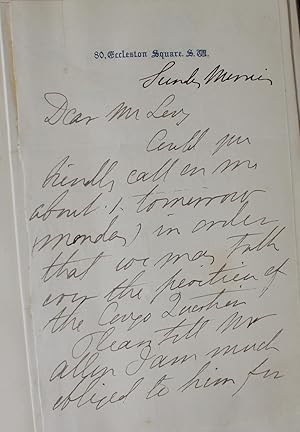 80, Eccleston Square. S.W.
Sunday Morning
Dear Mr Levy
Could you
kindly call on me
about 1. tomorrow
(monday) in order
that we may talk
over the position of
the Congo Question
Please tell Mr
I am much
obliged to him for